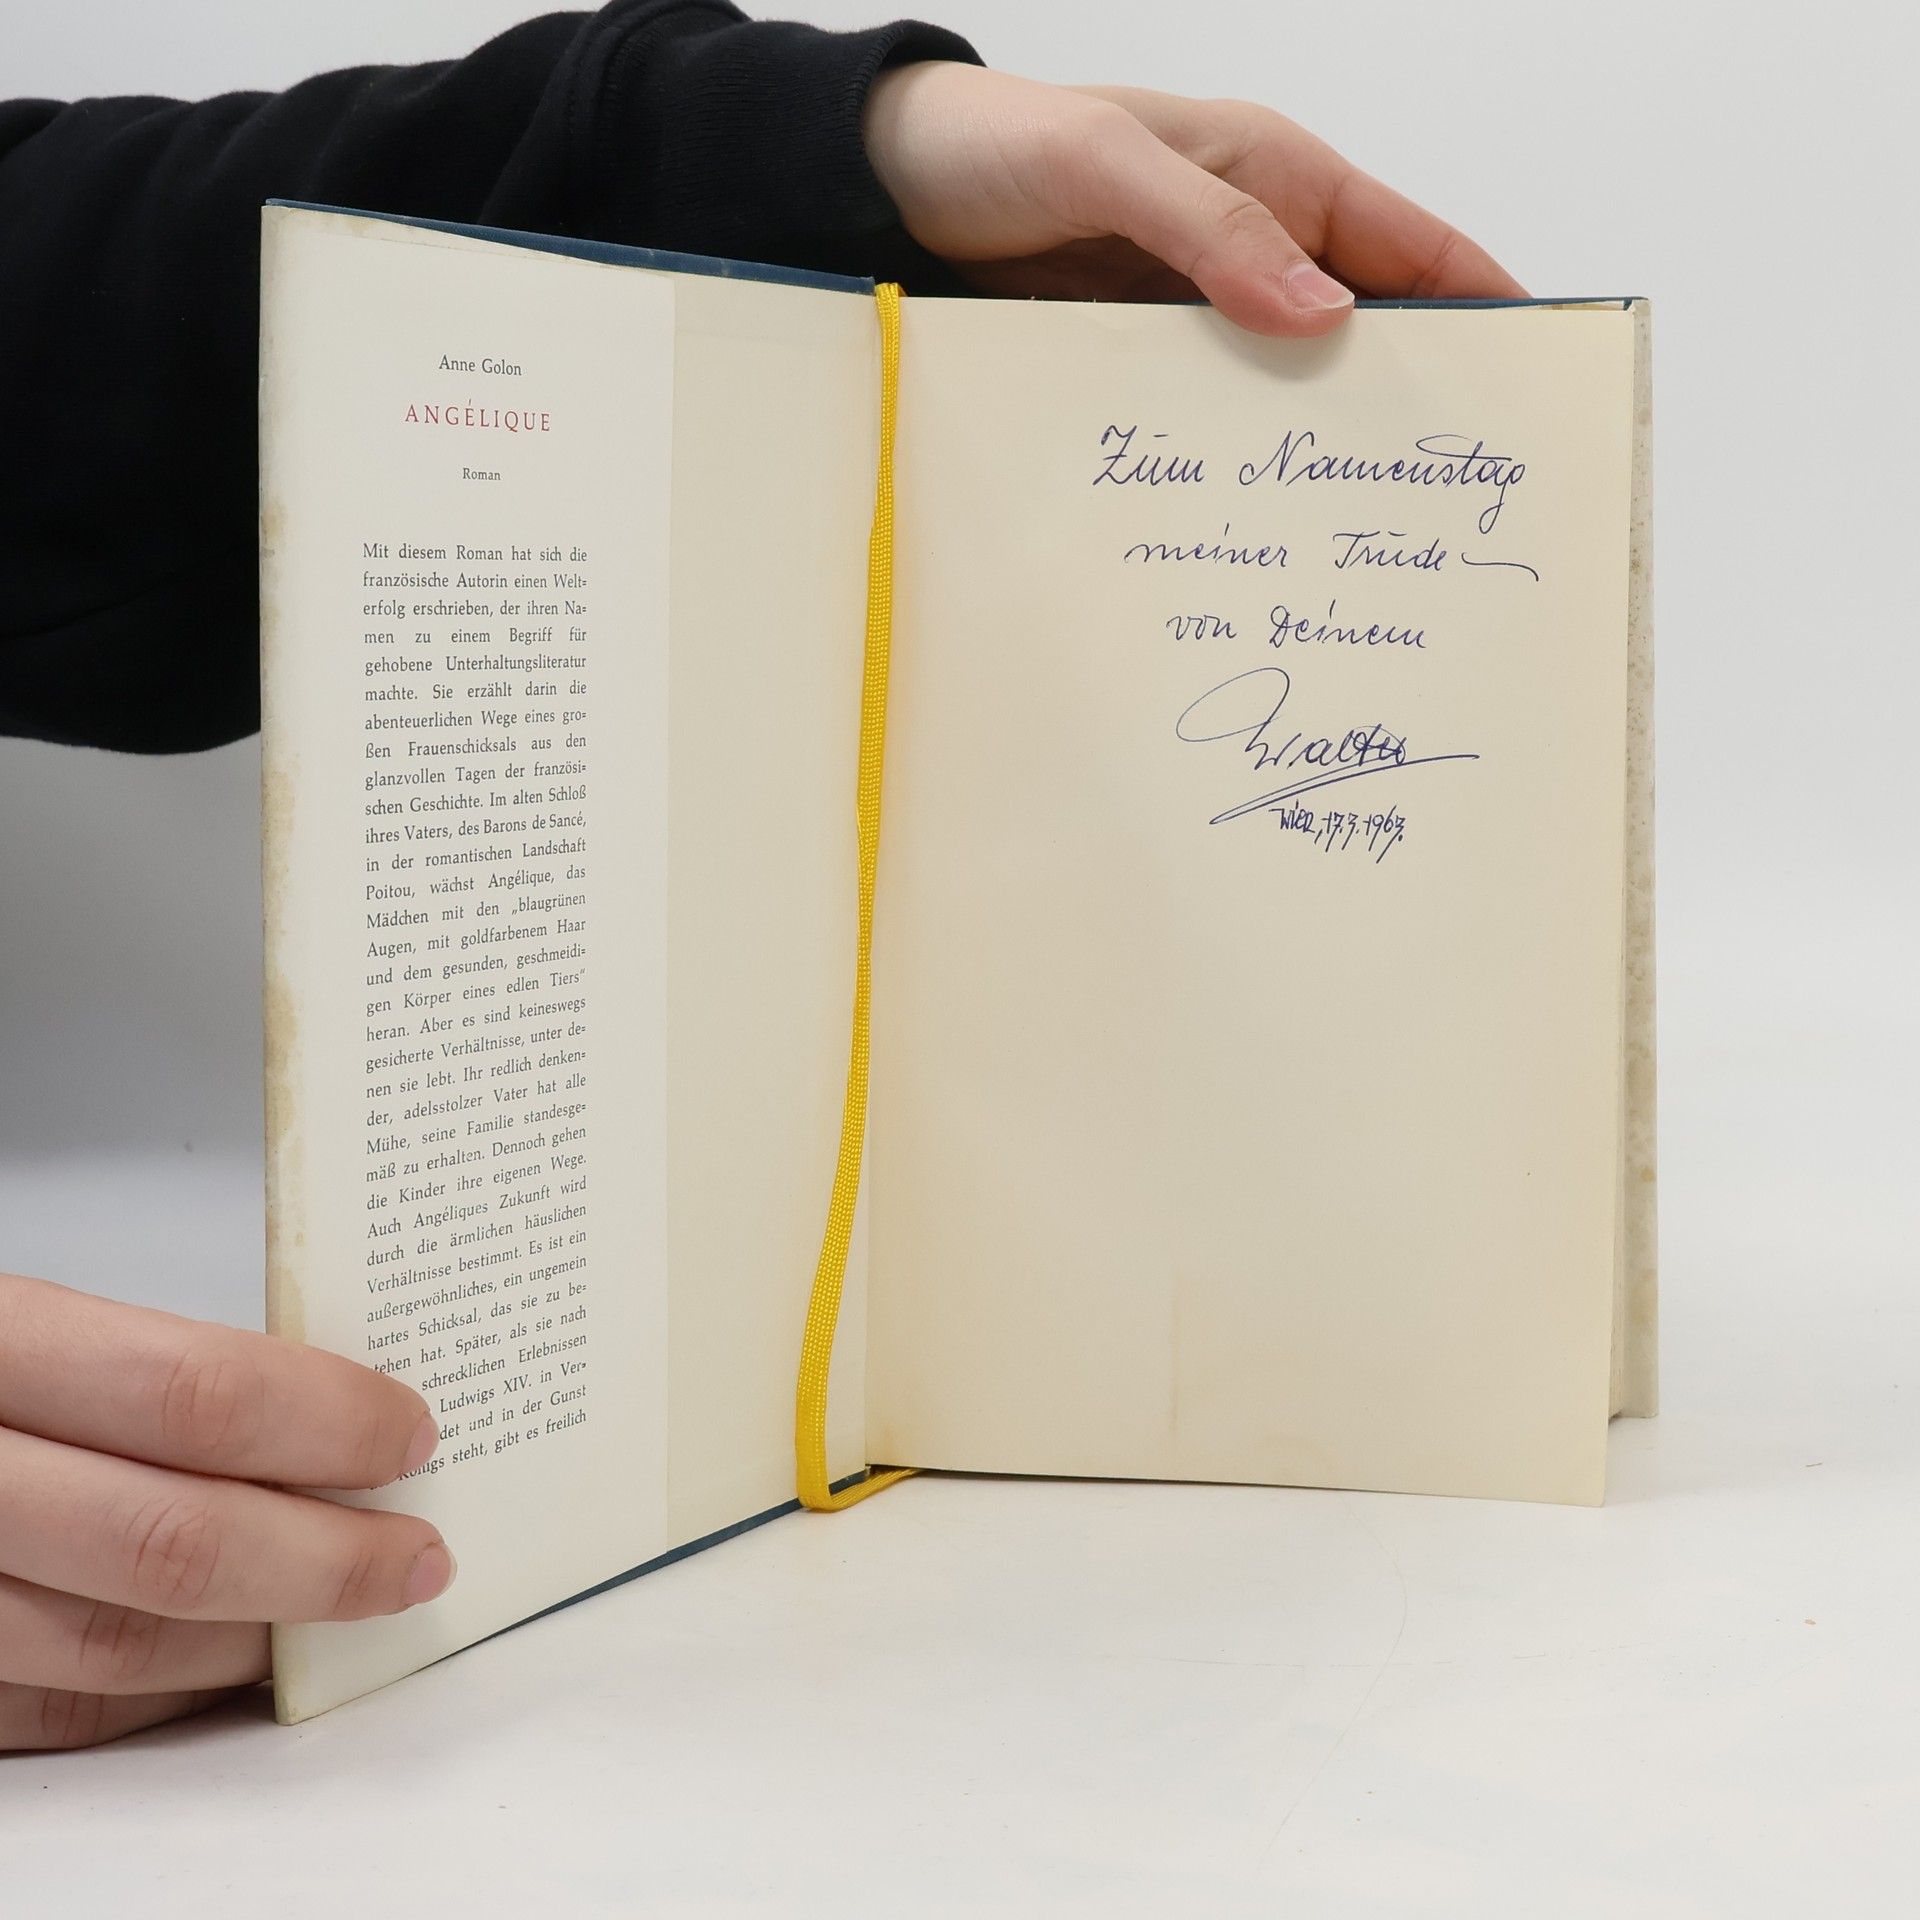 Anne Golon
ANGÉLIQUE
Roman
Mit diesem Roman hat sich die
französische Autorin einen Welt=
erfolg erschrieben, der ihren Na=
men zu einem Begriff für
gehobene Unterhaltungsliteratur
machte. Sie erzählt darin die
abenteuerlichen Wege eines gro=
ßen Frauenschicksals aus den
glanzvollen Tagen der französi=
schen Geschichte. Im alten Schloß
ihres Vaters, des Barons de Sancé,
in der romantischen Landschaft
Poitou, wächst Angélique, das
Mädchen mit den „blaugrünen
Augen, mit goldfarbenem Haar
und dem gesunden, geschmeidi=
gen Körper eines edlen Tiers"
heran. Aber es sind keineswegs
gesicherte Verhältnisse, unter de=
nen sie lebt. Ihr redlich denken=
der, adelsstolzer Vater hat alle
Mühe, seine Familie standesge=
mäß zu erhalten. Dennoch gehen
die Kinder ihre eigenen Wege.
Auch Angéliques Zukunft wird
durch die ärmlichen häuslichen
Verhältnisse bestimmt. Es ist ein
außergewöhnliches, ein ungemein
hartes Schicksal, das sie zu be=
stehen hat. Später, als sie nach
schrecklichen Erlebnissen
Ludwigs XIV. in Ver=
det und in der Gunst
Königs steht, gibt es freilich
Zum Namenstag
meiner Trude
von Deinem
Walter
Wien, 17.3.1967.